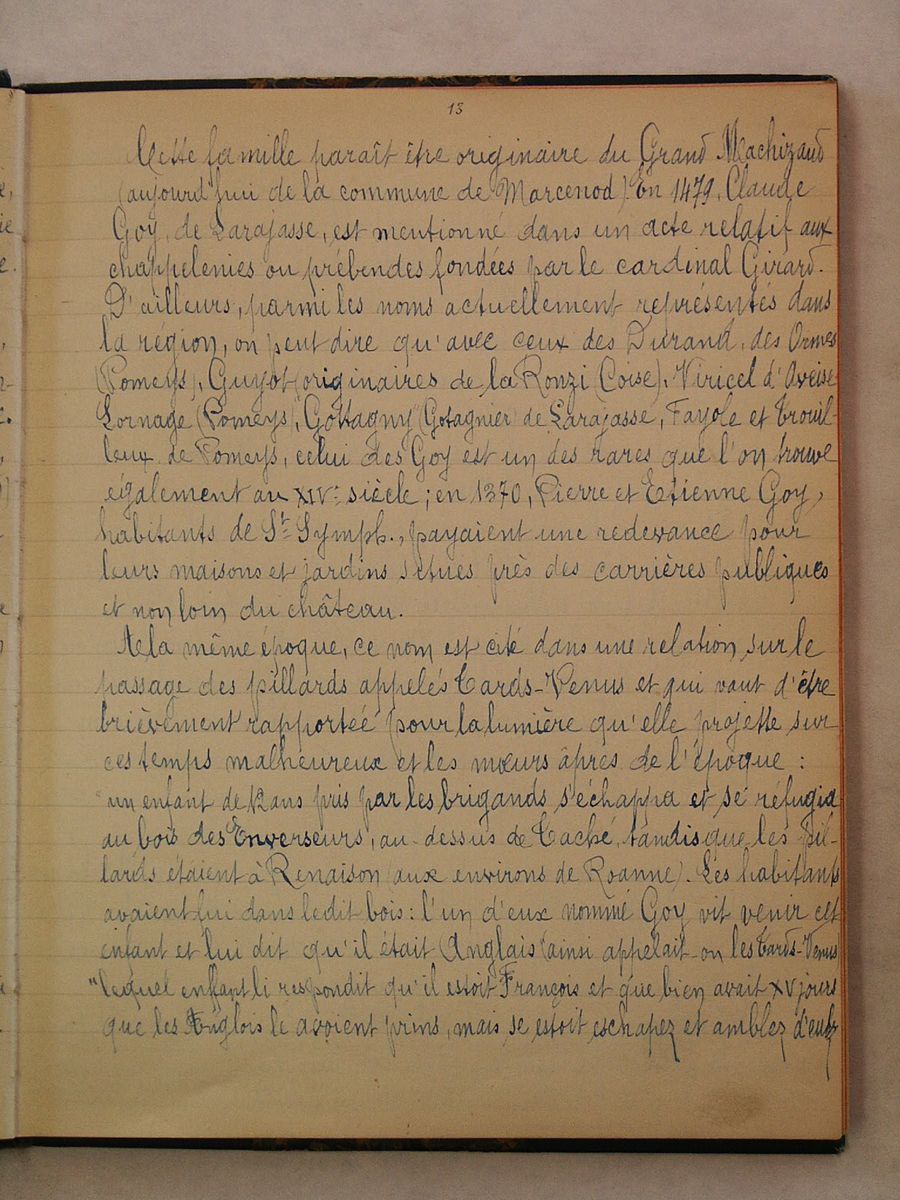 13
Cette famille paraît être originaire du Grand Machizaud
(aujourd'hui de la commune de Marcenod). En 1479, Claude
Goy, de Larajasse, est mentionné dans un acte relatif aux
chappelenies ou prébendes fondées par le cardinal Girard.
D'ailleurs, parmi les noms actuellement représentés dans
la région, on peut dire qu'avec ceux des Durand, des Ormes
(Pomeys), Guyot (originaires de la Ronzi (Coise), Viricel d'Aveise
Lornage (Pomeys), Gottagny (Gotagnier) de Larajasse, Fayole et Trouil-
leux de Pomeys, celui des Goy est un des rares que l'on trouve
également au XIVe siècle ; en 1370, Pierre et Etienne Goy,
habitants de St Symph., payaient une redevance pour
leurs maisons et jardins situés près des carrières publiques
et non loin du château.
A la même époque, ce nom est cité dans une relation sur le
passage des pillards appelés Tards-Venus et qui vaut d'être
brièvement rapportée pour la lumière qu'elle projette sur
ces temps malheureux et les mœurs âpres de l'époque :
un enfant de 12 ans pris par les brigands s'échappa et se réfugia
au bois des Enverseurs, au-dessus de Taché, tandis que les pil-
lards étaient à Renaison (aux environs de Roanne). Les habitants
avaient fui dans ledit bois : l'un d'eux nommé Goy vit venir cet
enfant et lui dit qu'il était Anglais (ainsi appelait-on les Tards-Venus
"lequel enffant li respondit qu'il estoit François et que bien avait XV jours
que les Anglois le avoient prins, mais se estoit eschapez et amblez d'eulz